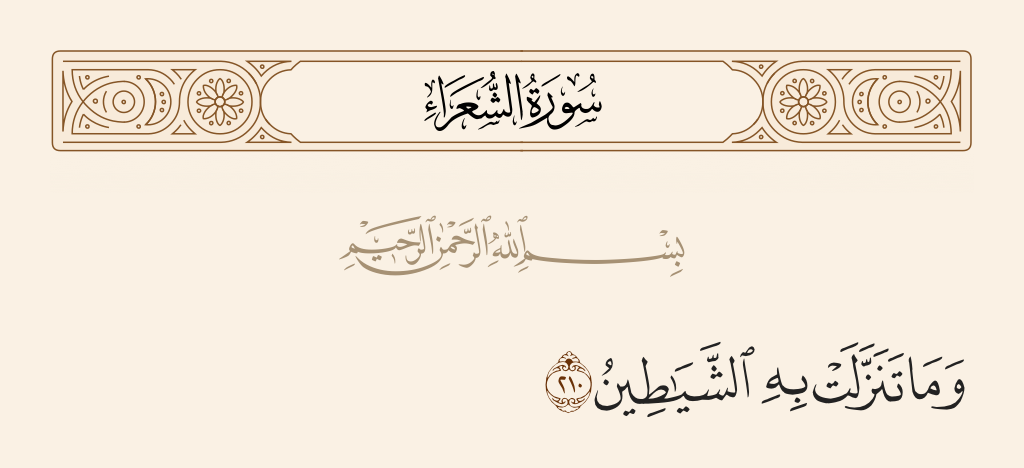 سُورَةُ الشُّعَرَاءِ
بِسْمِ ٱللَّهِ ٱلرَّحْمَٰنِ ٱلرَّحِيمِ
وَمَا تَنَزَّلَتْ بِهِ ٱلشَّيَٰطِينُ ٢١٠